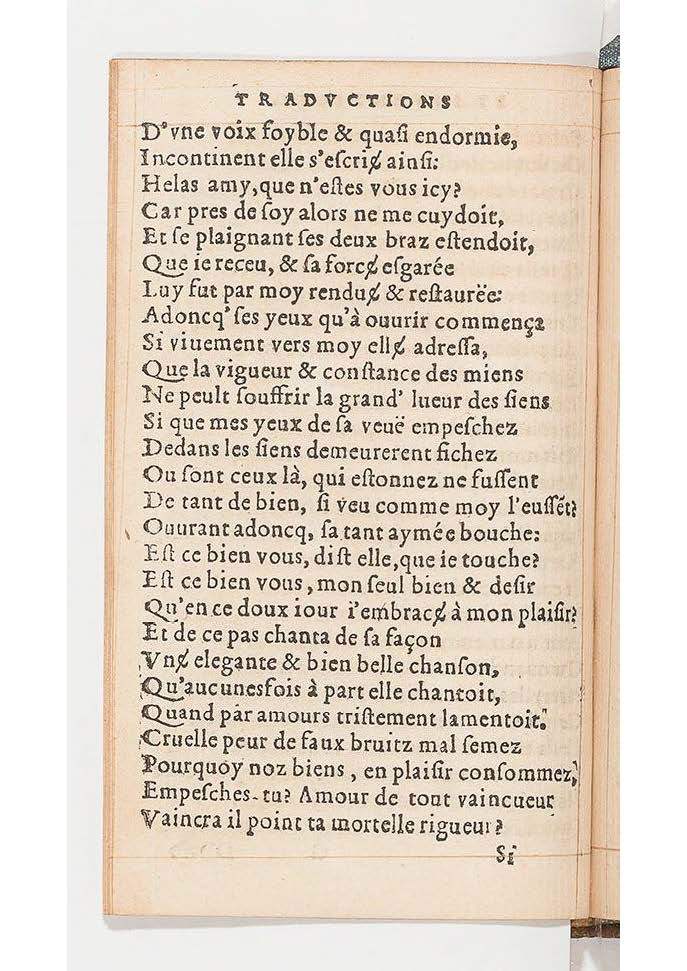 TRADVCTIONS
D'vne voix foyble & quaſi endormie,
Incontinent elle s'eſcriɇ ainſi:
Helas amy, que n'eſtes vous icy?
Car pres de ſoy alors ne me cuydoit,
Et ſe plaignant ſes deux braz eſtendoit,
Que ie receu, & ſa forcɇ eſgarée
Luy fut par moy renduɇ & reſtaurëe:
Adoncq' ſes yeux qu'à ouurir commença
Si viuement vers moy ellɇ adreſſa,
Que la vigueur & conſtance des miens
Ne peult ſouffrir la grand' lueur des ſiens
Si que mes yeux de ſa veuë empeſchez
Dedans les ſiens demeurerent fichez
Ou ſont ceux là, qui eſtonnez ne fuſſent
De tant de bien, ſi veu comme moy l'euſſẽt?
Ouurant adoncq, ſa tant aymée bouche:
Eſt ce bien vous, diſt elle, que ie touche?
Eſt ce bien vous, mon ſeul bien & deſir
Qu'en ce doux iour i'embracɇ à mon plaiſir?
Et de ce pas chanta de ſa façon
Vnɇ elegante & bien belle chanſon,
Qu'aucunesfois à part elle chantoit,
Quand par amours triſtement lamentoit.
Cruelle peur de faux bruitz mal ſemez
Pourquoy noz biens, en plaiſir conſommez,
Empeſches-tu? Amour de tout vaincueur
Vaincra il point ta mortelle rigueur?
Si